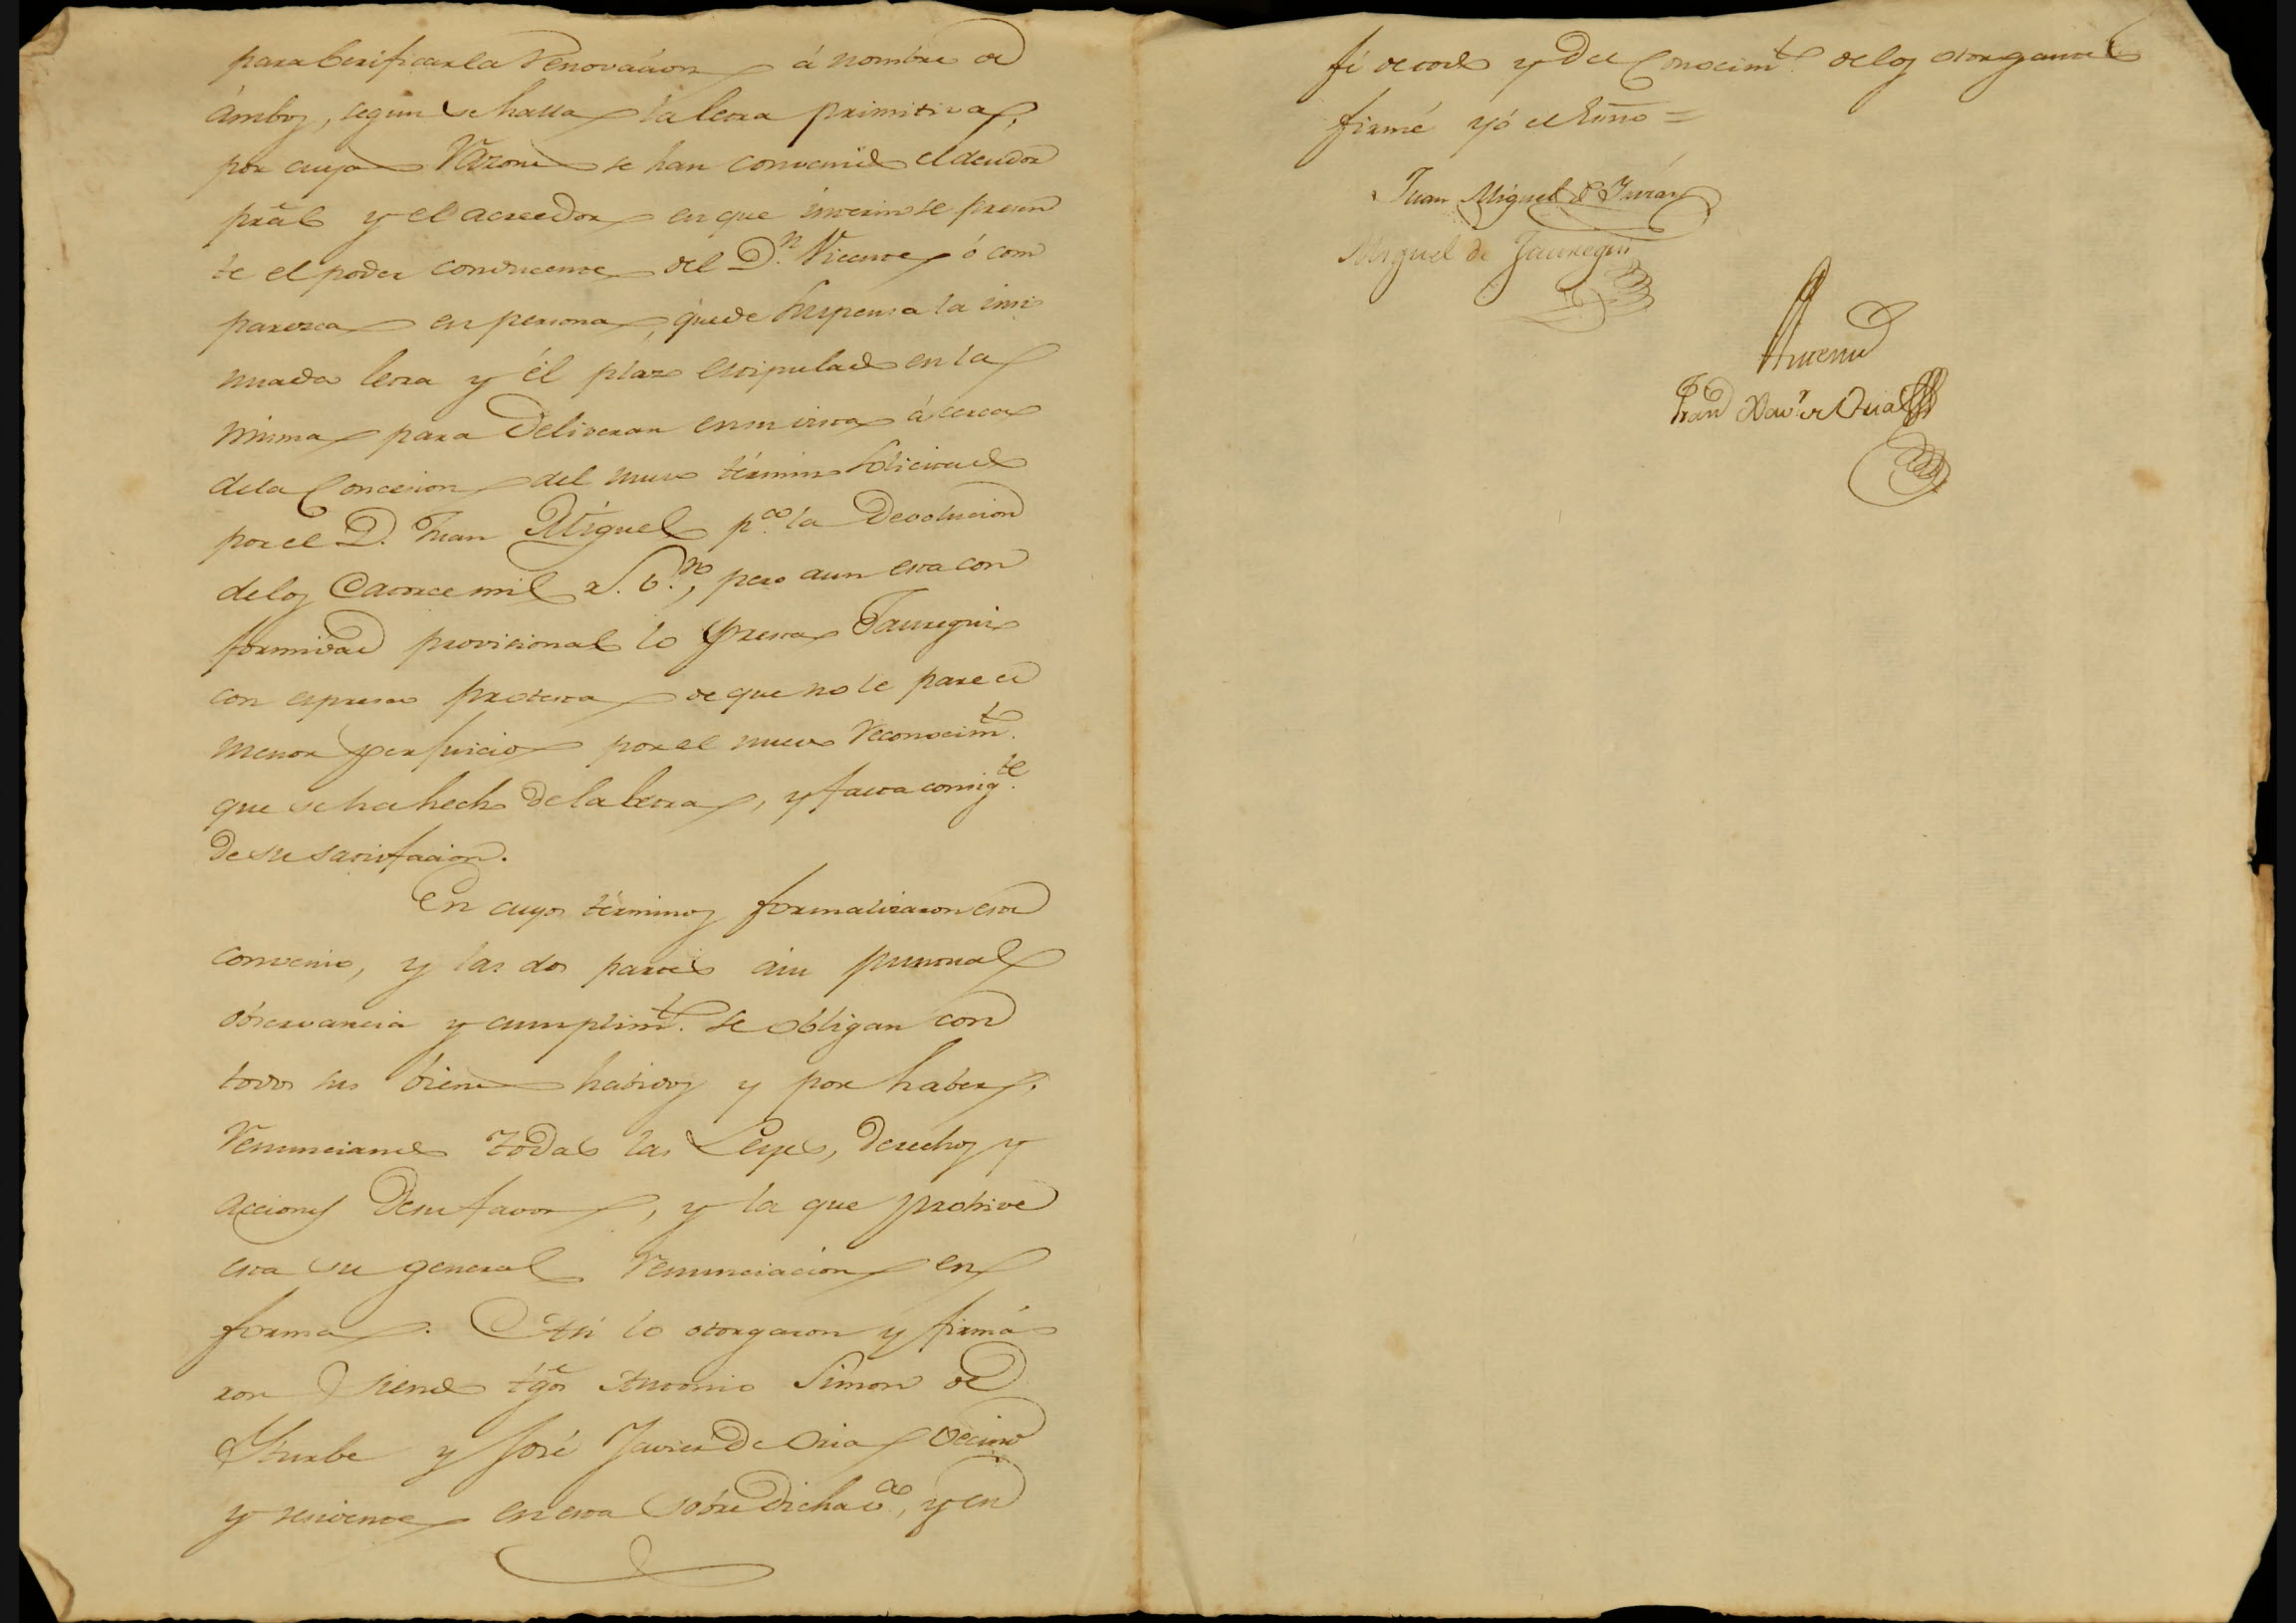 para berificar la renovacion á nombre de
ámbos, segun se halla la letra primitiva,
por cuyas razones se han convenido el deudor
pral y el acreedor en que interin se presen
te el poder conducente del D.n Vicente, ó com
paresca en persona, quede suspensa la insi
nuada letra y él plazo estipulado en la
misma para deliverar en su vista á cerca
de la Concesion del nuevo término solicitado
por el D. Juan Miguel p.a la devolucion
de los Catorce mil r.s v.n, pero aun esta con
formidad provisional lo presta Jauregui
con espresa protesta de que no le pare el
menor perjuicio por el nuevo reconocim.to
que se ha hecho de la letra, y falta consig.te
de su satisfacion.
En cuyos términos formalizaron este
convenio, y las dos partes á su puntual
observancia y cumplim.to se obligan con
todos sus bienes habidos y por haber,
renunciando todas las Leyes, derechos y
acciones de su favor, y la que prohive
esta su general renunciacion en
forma. Asi lo otorgaron y firmá
ron siendo tgos Antonio Simon de
Yturbe y José Javier de Oria vecino
y residente en esta sobre dicha v.a, y en
fé de todo y del Conocim.to de los otorgantes
firmé yó el Esno =
Juan Miguel de
Miguel de Jauregui
Antemi
Fran Xav.r de Oria